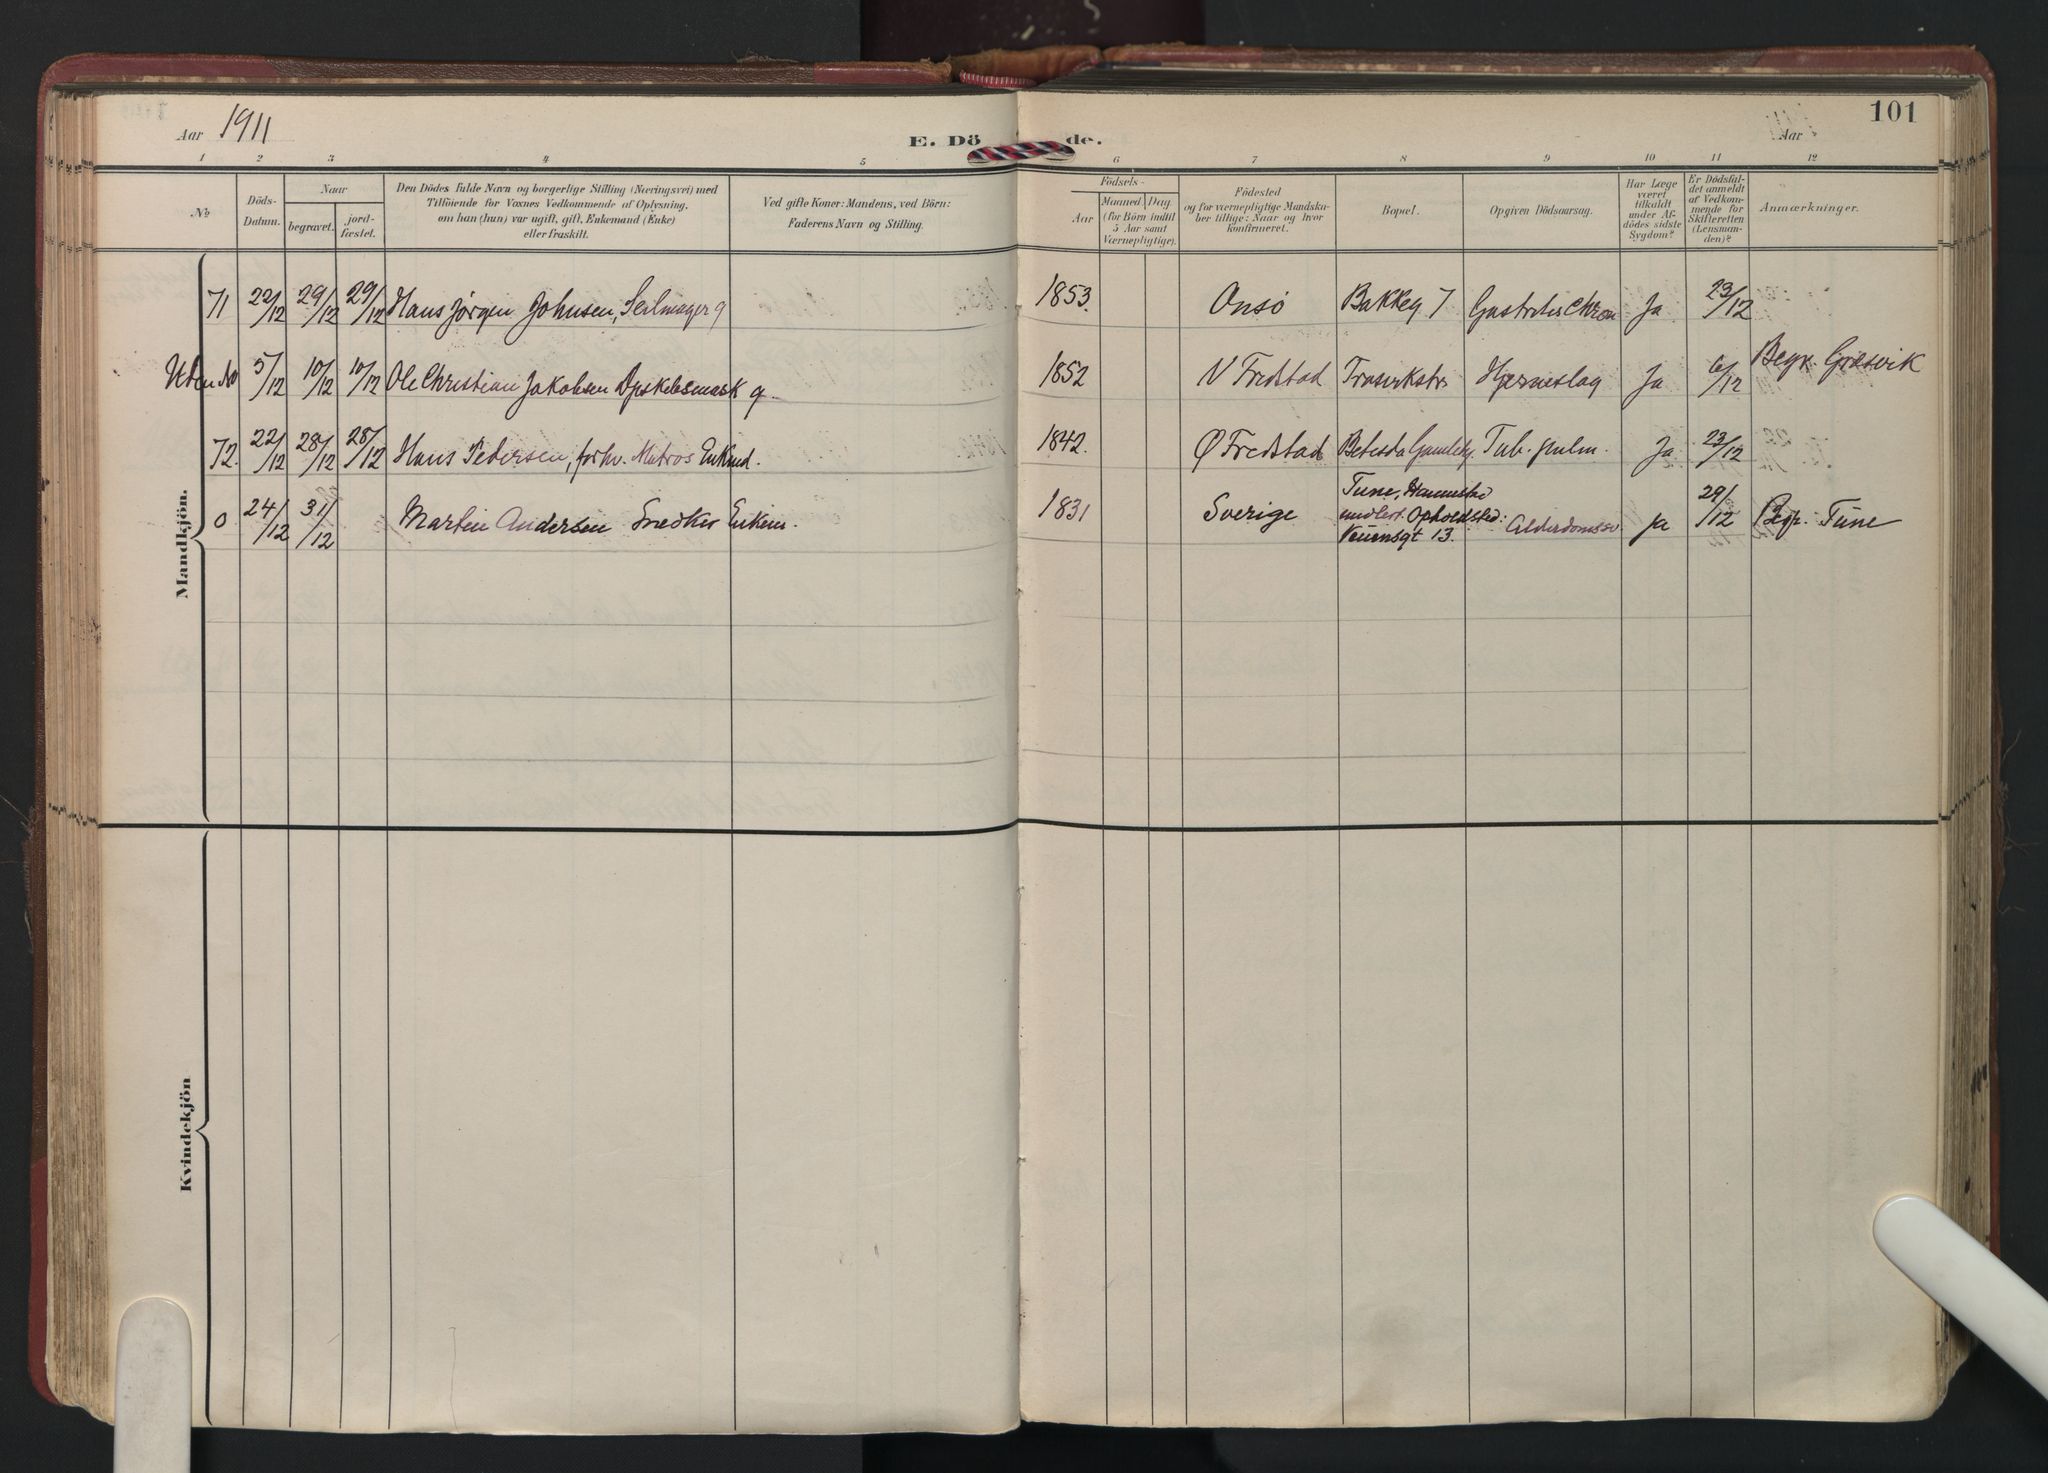 101
Aar 1911
E. Dö de.
Aar
1 2 3 4 5 6 7 8 9 10 11 12
No
Döds-
Datum.
Naar
begravet.
jord-
fæstet.
Den Dödes fulde Navn og borgerlige Stilling (Næringsvei) med
Tilföiende for Voxnes Vedkommende af Oplysning,
om han (hun) var ugift, gift, Enkemand (Enke)
eller fraskilt.
Ved gifte Koner: Mandens, ved Börn:
Faderens Navn og Stilling.
Födsels-
Aar
Maaned. Dag.
(for Börn indtil
5 Aar samt
Værnepligtige).
Födested
og for værnepligtige Mandska-
ber tillige: Naar og hvor
konfirmeret.
Bopæl.
Opgiven Dödsaarsag.
Har Læge
været
tilkaldt
under Af-
dödes sidste
Sygdom?
Er Dödsfal-
det anmeldt
af Vedkom-
mende for
Skifteretten
(Lensman-
den)?
Anmærkninger.
Mandkjön.
71 22/12 29/12 29/12 Hans Jørgen Johnsen, Seilmager g 1853. Onsö Bakkeg 7 Gastritis Chron Ja 23/12
Uden No 5/12 10/12 10/12 Ole Christian Jakobsen g. 1852 N Fredstad Hjerneslag Ja 6/12 Begr. Græsvik
72. 22/12 28/12 28/12 Hans Pedersen, forhv. Matros Enkmd. 1842. Ø Fredstad Betesda Gamleby Tub. pulm. Ja 23/12
0 24/12 31/12 Martin Andersen Snedker Enkem. 1831 Sverige Tune, Hannestad
midlert. Opholdssted:
13. Alderdomssv Ja 29/12 Begr. Tune
Kvindekjön